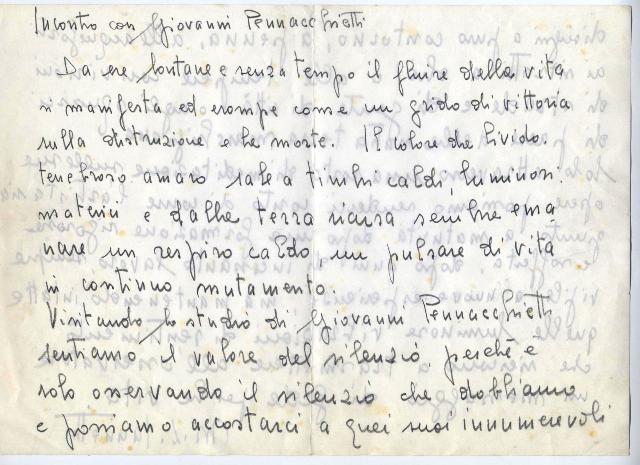 Incontro con Giovanni Pennacchietti
Da ere lontane e senza tempo il fluire della vita
si manifesta ed erompe come un grido di vittoria
sulla distruzione e la morte. Il colore da livido.
tenebroso amaro sale a timbri caldi, luminosi.
materici e dalla terra riarsa sembra ema
nare un respiro caldo, un pulsare di vita
in continuo mutamento.
Visitando lo studio di Giovanni Pennacchietti
sentiamo il valore del silenzio perchè è
solo osservando il silenzio che dobbiamo
e possiamo accostarci a quei suoi innumerevoli